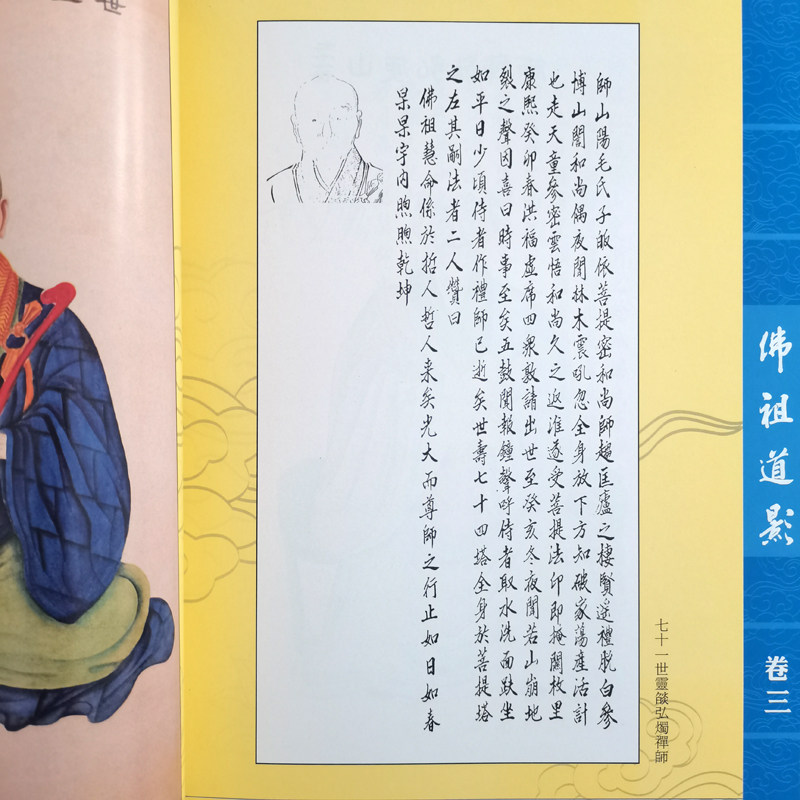 佛祖道影
卷三
七十一世靈燄弘燭禪師
師山陽毛氏子皈依菩提密和尚師趨匡廬之棲賢遂禮脫白參
博山閣和尚偶夜聞林木震吼忽全身放下方知破家蕩產活計
也走天童參密雲悟和尚久之返淮遂受菩提法印即掩關枚里
康熙癸卯春洪福虛席四眾敦請出世至癸亥冬夜聞若山崩地
裂之聲因喜曰時事至矣五鼓聞報鐘聲呼侍者取水洗面趺坐
如平日少頃侍者作禮師已逝矣世壽七十四塔全身於菩提塔
之左其嗣法者二人讚曰
佛祖慧命係於哲人哲人來矣光大而尊師之行止如日如春
杲杲宇內煦煦乾坤
世